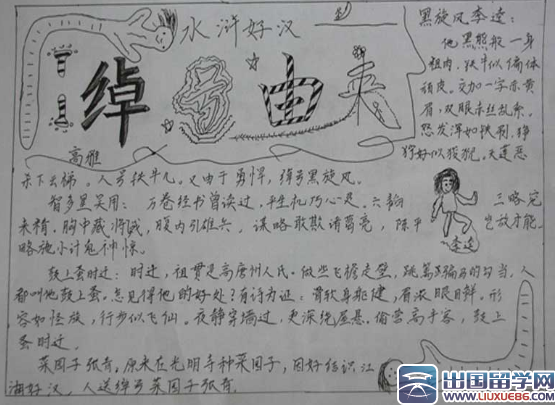 水浒好汉
绰号由来
高雅
黑旋风李逵：
他黑熊般一身
粗肉，铁牛似
顽皮。交加一字赤黄
眉，双眼赤丝乱系。
怒发浑如铁刷，狰
狞好似狻猊。天蓬恶
杀下云梯。人号铁牛儿。又由于勇悍，绰号黑旋风。
智多星吴用：万卷经书曾读过，平生机巧心灵。六韬
三略究
来精。胸中藏战将，腹内引雄兵。谋略敢欺诸葛亮，陈平
岂放才能。
略施小计鬼神惊。
李逵
鼓上蚤时迁：时迁，祖贯是高唐州人氏。做些飞檐走壁，跳篱骗马的勾当，人
都叫他鼓上蚤。怎见得他的好处？有诗为证：骨软身躯健，眉浓眼目鲜。形
容如怪族，行步似飞仙。夜静穿墙过，更深绕屋悬。偷营高手客，鼓上
蚤时迁。
菜园子张青，原来在光明寺种菜园子，因好结识江
湖好汉，人送绰号菜园子张青。
出国留学网
www.liuxue86.com